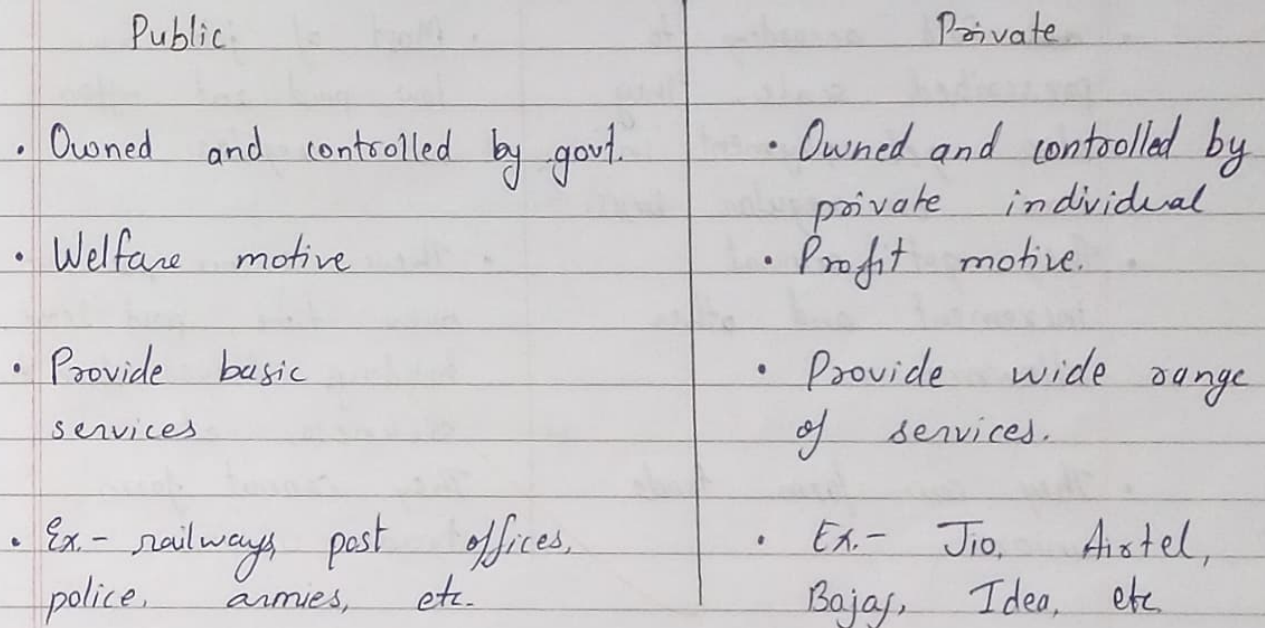 Public
Private
• Owned and controlled by govt.
• Owned and controlled by
private individual
• Welfare motive
• Profit motive.
• Provide basic
services
• Provide wide range
of services.
• Ex.- railways, post offices,
police, armies, etc.
• Ex.- Jio, Airtel,
Bajaj, Idea, etc